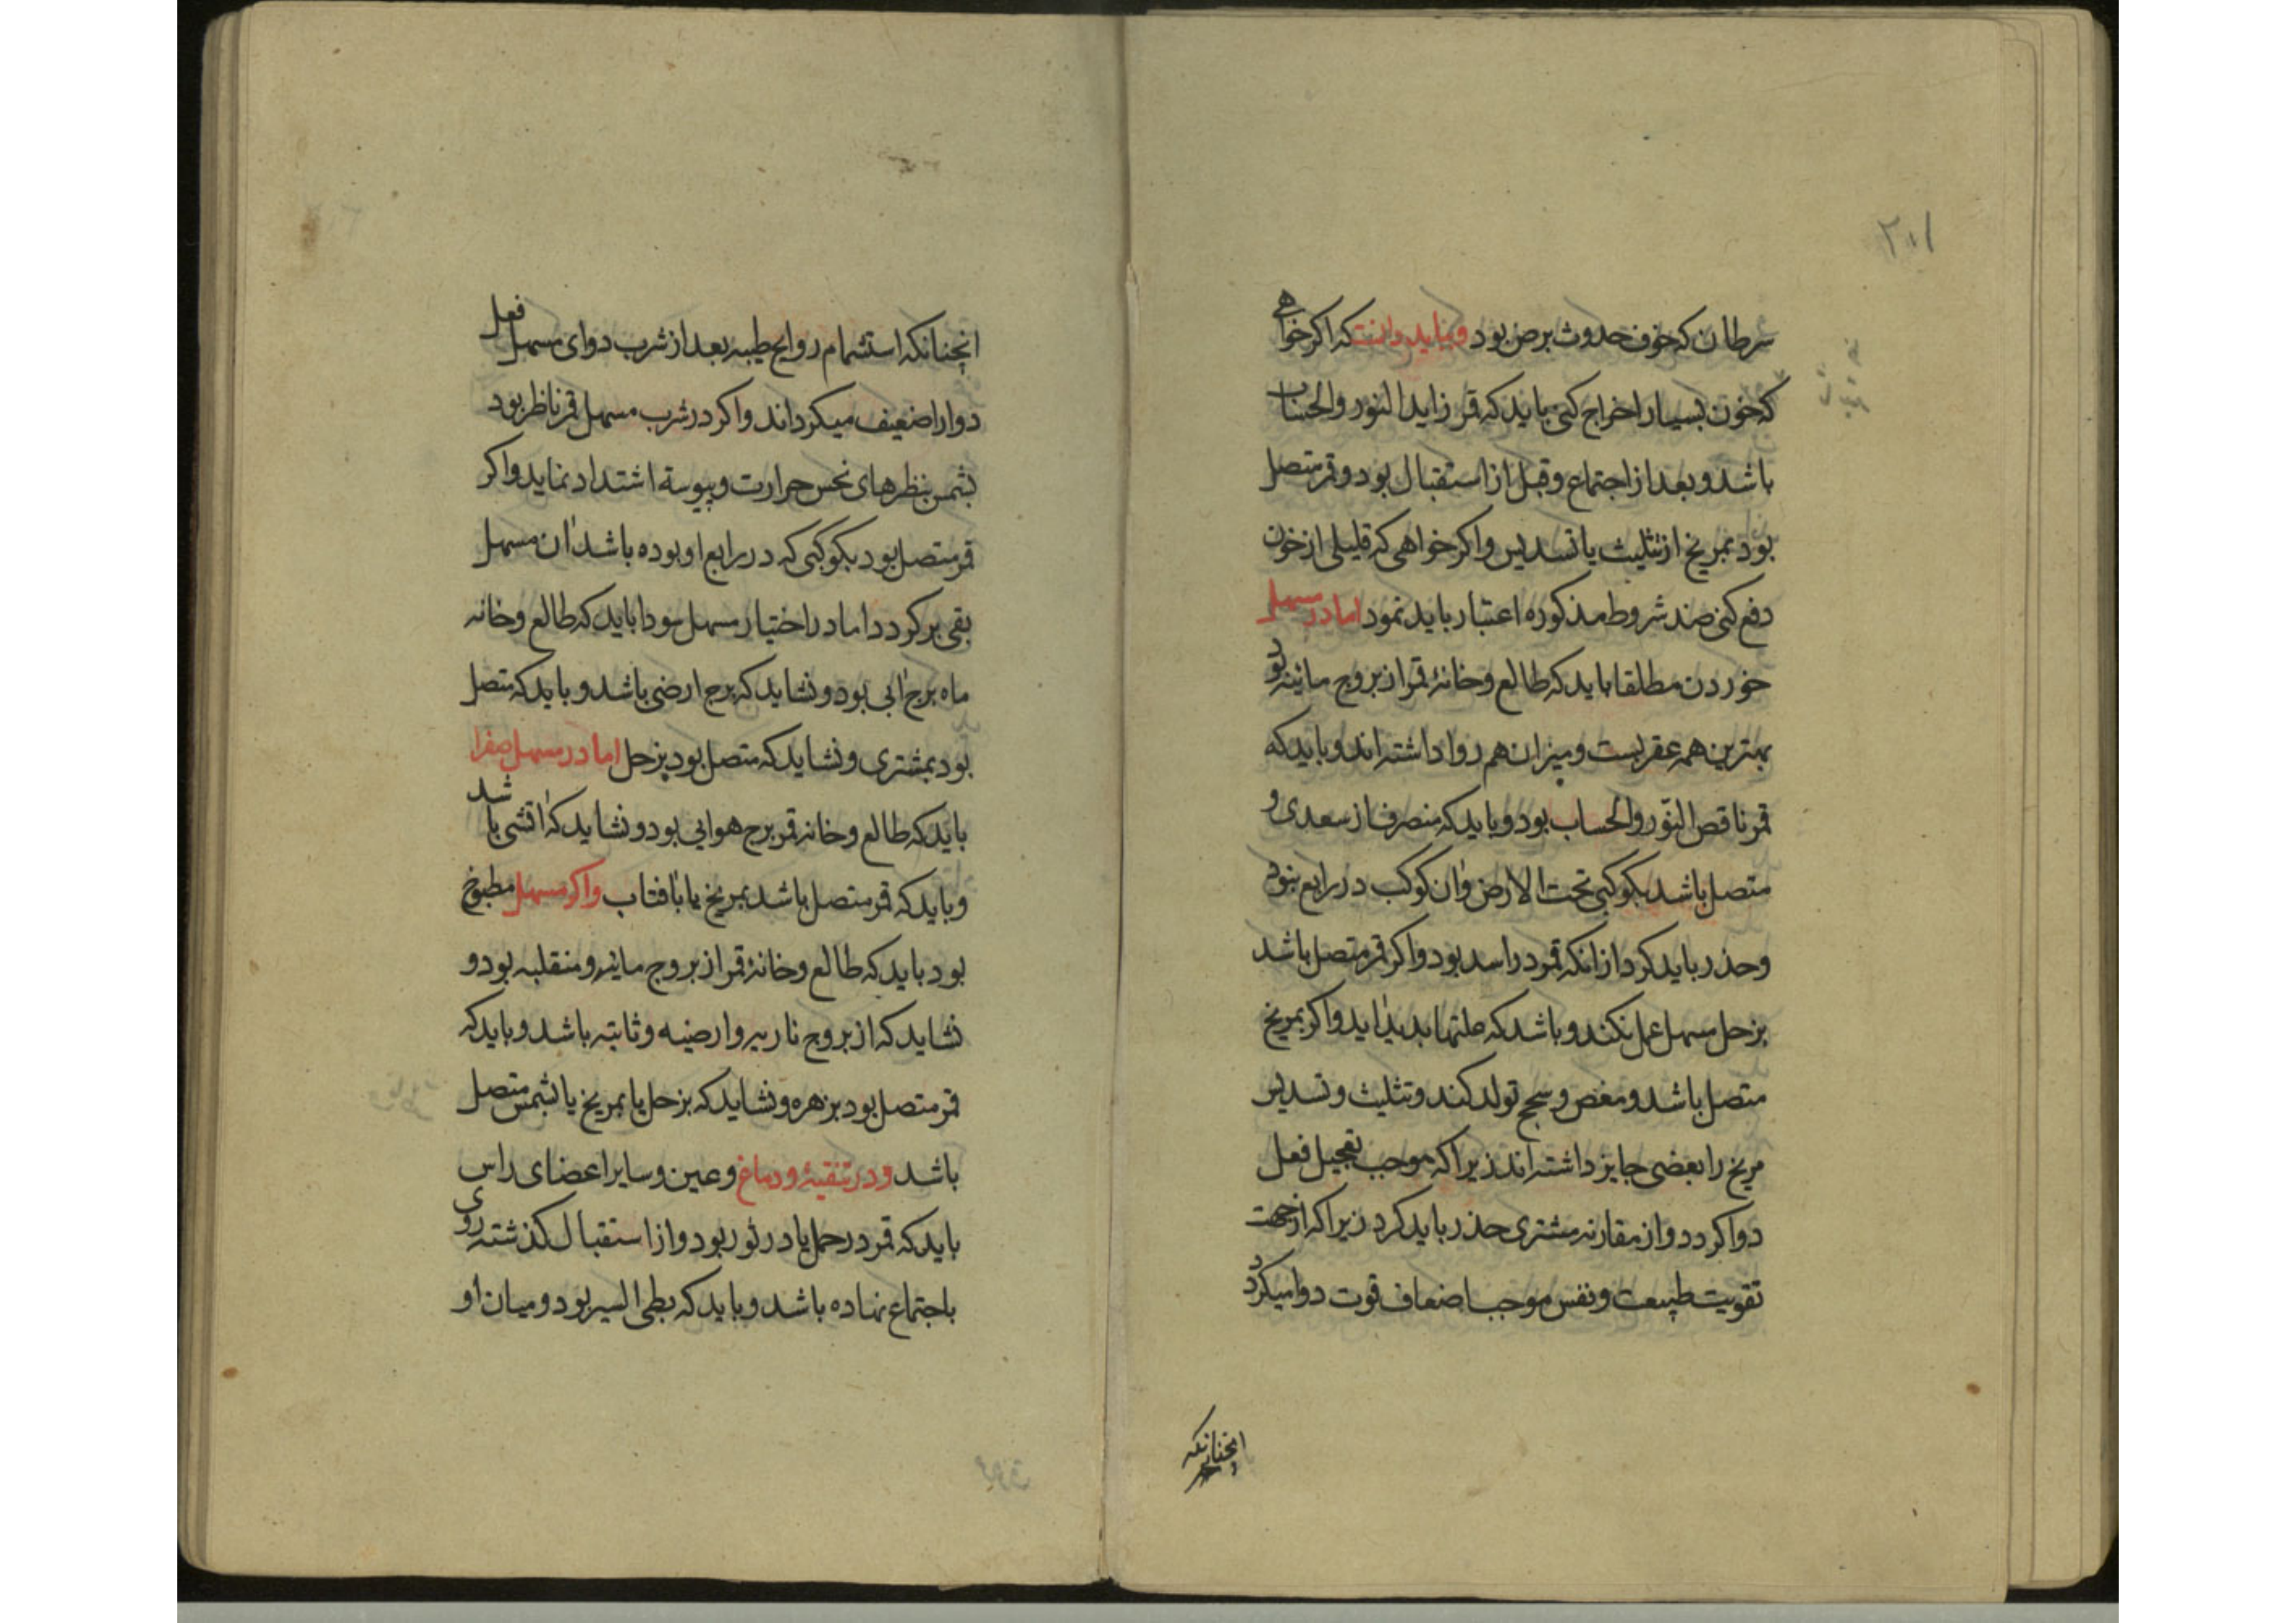 ٢٠١
سرطان که خوف حدوث برص بود وبباید دانست که اکر خواهی
که خون بسیار اخراج کنی باید که قمر زاید النور والحساب
باشد و بعد از اجتماع و قبل از استقبال بود و قمر متصل
بود بمریخ از تثلیث یا تسدیس و اکر خواهی که قلیلی از خون
دفع کنی ضد شروط مذکوره اعتبار باید نمود اما در مسهل
خوردن مطلقا باید که طالع و خانهٔ قمر از بروج مائیه بود
بهترین همه عقربست و میزان هم روا داشته اند و باید که
قمر ناقص النّور والحساب بود و باید که منصرف از سعدی و
متصل باشد بکوکبی تحت الارض وآن کوکب در رابع نبود
وحذر باید کرد از انکه قمر در اسد بود و اکر قمر متصل باشد
بزحل مسهل عمل نکند و باشد که علتها بدید آید و اکر بمریخ
متصل باشد و مغص و سحج تولد کند و تثلیث و تسدیس
مریخ را بعضی جایز داشته اند زیرا که موجب تعجیل فعل
دوا کردد و از مقارنه مشتری حذر باید کرد زیرا که از جهت
تقویت طبیعت و نفس موجب اضعاف قوت دوا میکردد
انچنانکه
انچنانکه استشمام روایح طیبه بعد از شرب دوای مسهل فعل
دوا را ضعیف میکرداند و اکر در شرب مسهل قمر ناظر بود
بشمس بنظرهای نحس حرارت و یبوسة اشتداد نماید و اکر
قمر متصل بود بکوکبی که در رابع او بوده باشد آن مسهل
بقی برکردد اما در اختیار مسهل سودا باید که طالع و خانه
ماه برج آبی بود و نشاید که برج ارضی باشد و باید که متصل
بود بمشتری و نشاید که متصل بود بزحل اما در مسهل صفرا
باید که طالع و خانه قمر برج هوایی بود و نشاید که آتشی باشد
و باید که قمر متصل باشد بمریخ یا بآفتاب و اکر مسهل مطبوخ
بود باید که طالع و خانهٔ قمر از بروج مائیه و منقلبه بود و
نشاید که از بروج ناریه و ارضیه و ثابته باشد و باید که
قمر متصل بود بزهره و نشاید که بزحل یا بمریخ یا بشمس متصل
باشد ودر تنقیهٔ ودماغ و عین و سایر اعضای راس
باید که قمر در حمل یا در ثور بود و از استقبال کذشته روی
باجتماع نهاده باشد و باید که بطی السیر بود و میان او